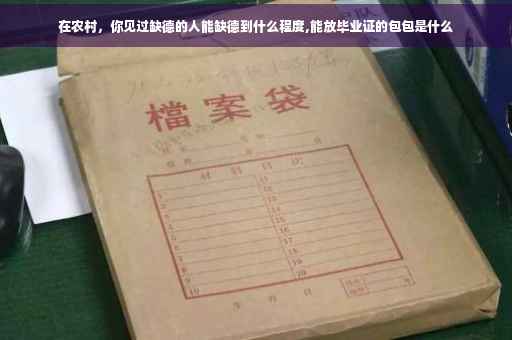 在农村，你见过缺德的人能缺德到什么程度,能放毕业证的包包是什么
檔案袋
材料目次
1 11
2 12
3 13
4 14
5 15
6 16
7 17
8 18
9 19
10 20
年 月 日